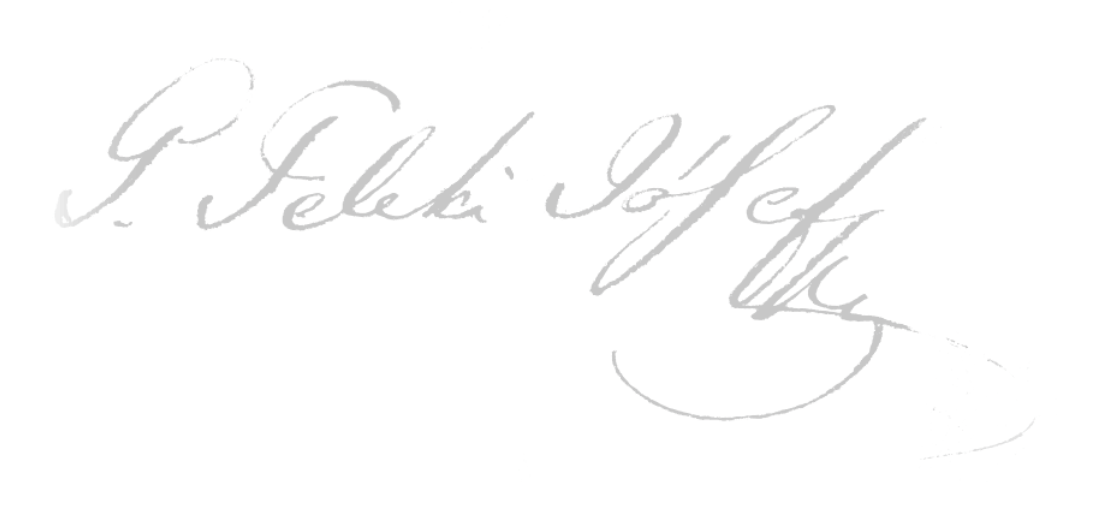 G. Teleki Jósef